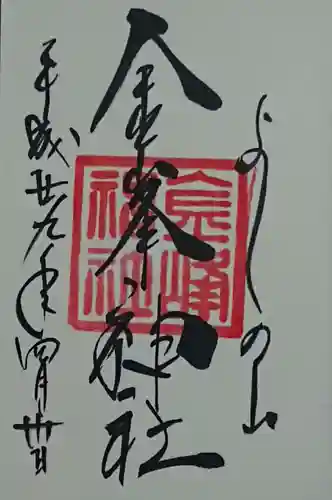 よしの山
金峯神社
金峯神社
平成廿九年四月卅日